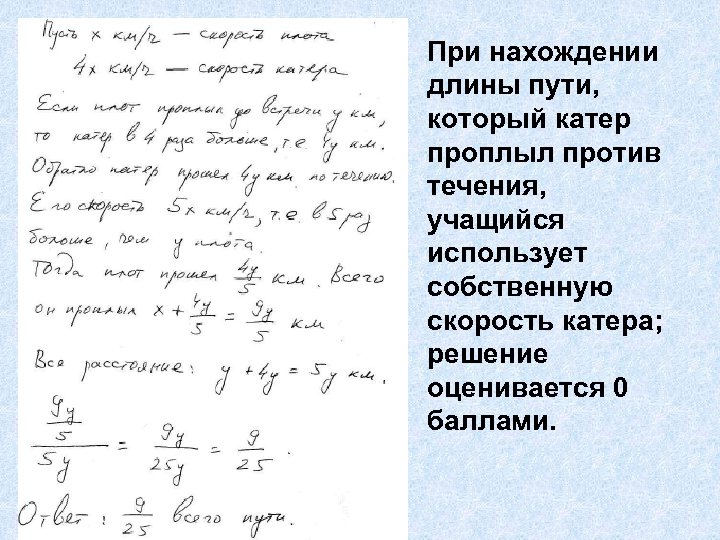 Пусть x км/ч — скорость плота
4x км/ч — скорость катера
Если плот проплыл до встречи y км,
то катер в 4 раза больше, т.е. 4y км.
Обратно катер прошел 4y км по течению.
Его скорость 5x км/ч, т.е. в 5 раз
больше, чем у плота.
Тогда плот прошел 4y/5 км. Всего
он проплыл x + 4y/5 = 9y/5 км
Все расстояние: y + 4y = 5y км.
9y/5 / 5y = 9y/25y = 9/25.
Ответ: 9/25 всего пути.
При нахождении
длины пути,
который катер
проплыл против
течения,
учащийся
использует
собственную
скорость катера;
решение
оценивается 0
баллами.